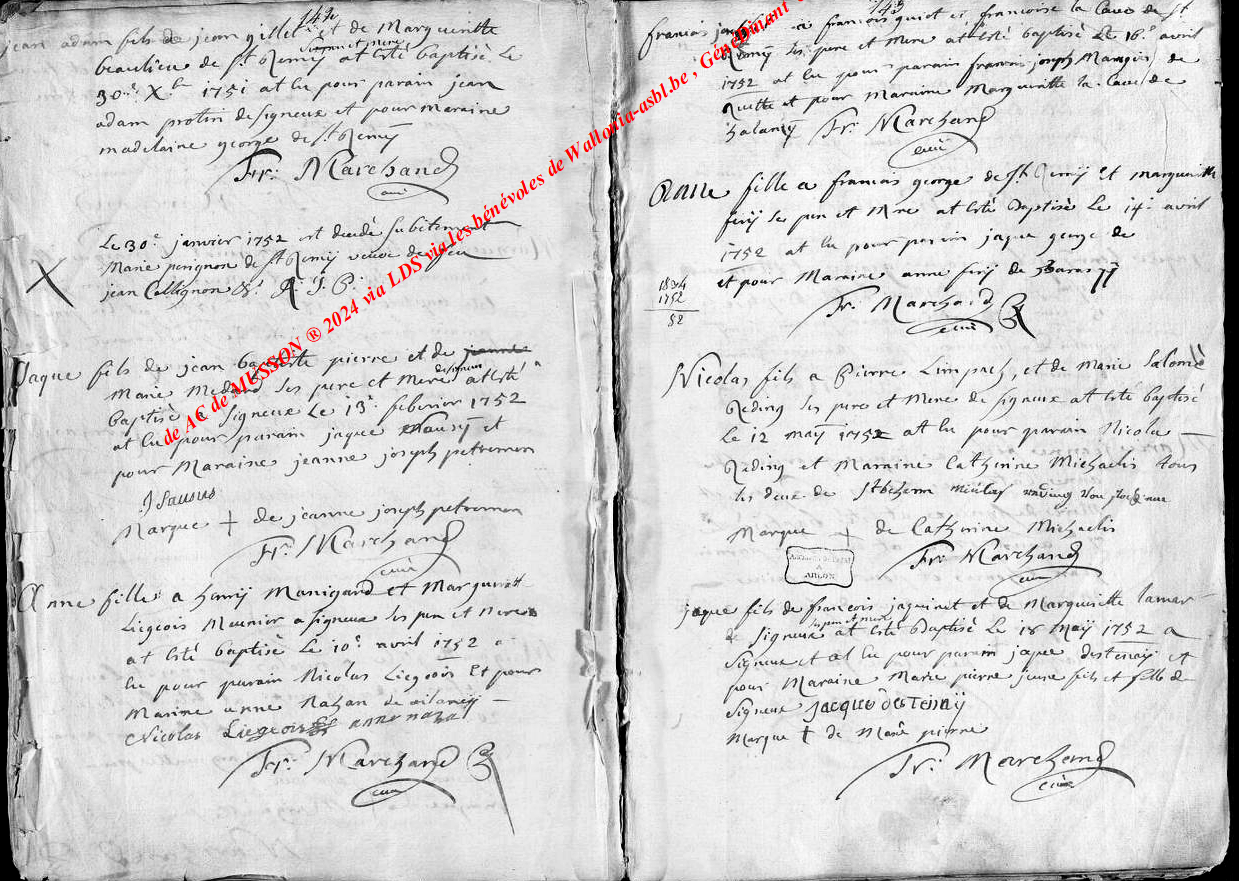 142
jean adam fils de jean gillet et de Margueritte
beaulieu de St Remÿ at esté baptisé Le
30e Xbre 1751 at eu pour parain jean
adam protin de signeux et pour Maraine
madelaine george de St Remÿ
Fr: Marchand
curé
Le 30e janvier 1752 est decedé subitement
Marie perignon de St Remÿ veuve de feu
jean Collignon R. I. P.
jaque fils de jean baptiste pierre et de
Marie Medard ses pere et Mere de signeux at esté
baptisé a signeux Le 13e febvrier 1752
at eu pour parain jaque et
pour Maraine jeanne joseph petremen
J Sausus
Marque + de jeanne joseph petremen
Fr: Marchand
curé
Anne fille a henrÿ Manigard et Margueritte
Liegeois Meunier a signeux ses pere et Mere
at esté baptisé Le 10e avril 1752 a
eu pour parain Nicolas Liegeois Et pour
Marine anne Nahan de
Nicolas Liegeois anne naza
Fr: Marchand
curé
143
francois joseph fils a francois guiot et francoise la Cave de St
Remÿ ses pere et Mere at esté baptisé Le 16e avril
1752 at eu pour parain francois joseph de
Ruette et pour Maraine Margueritte la Cave de
halanzÿ Fr: Marchand
curé
Anne fille a francois george de St Remÿ Et marguerite
ferÿ ses pere et Mere at esté Baptisé Le 14e avril
1752 at eu pour parain jaque george de
et pour Maraine anne ferÿ de
1804
1752
52
Fr: Marchand
curé
Nicolas fils a Pierre Limpach, et de Marie Salomé
Reding ses pere et Mere de signeux at esté baptisé
Le 12 maÿ 1752 at eu pour parain Nicolas
Reding et Maraine Catherine Michaelis tous
les deux de
Marque + de Catherine Michaelis
Fr: Marchand
curé
A
ARLON
jaque fils de francois jaquinet et de Marguerite lamer
de signeux ses pere et mere at esté Baptisé Le 18 Maÿ 1752 a
signeux et at eu pour parain jaque destenaÿ et
pour Maraine Marie pierre jeune fils et fille de
signeux jacque destenaÿ
Marque + de Marie pierre
Fr: Marchand
curé
de AC de MUSSON ® 2024 via LDS via les bénévoles de Wallonia-asbl.be , Génébinant